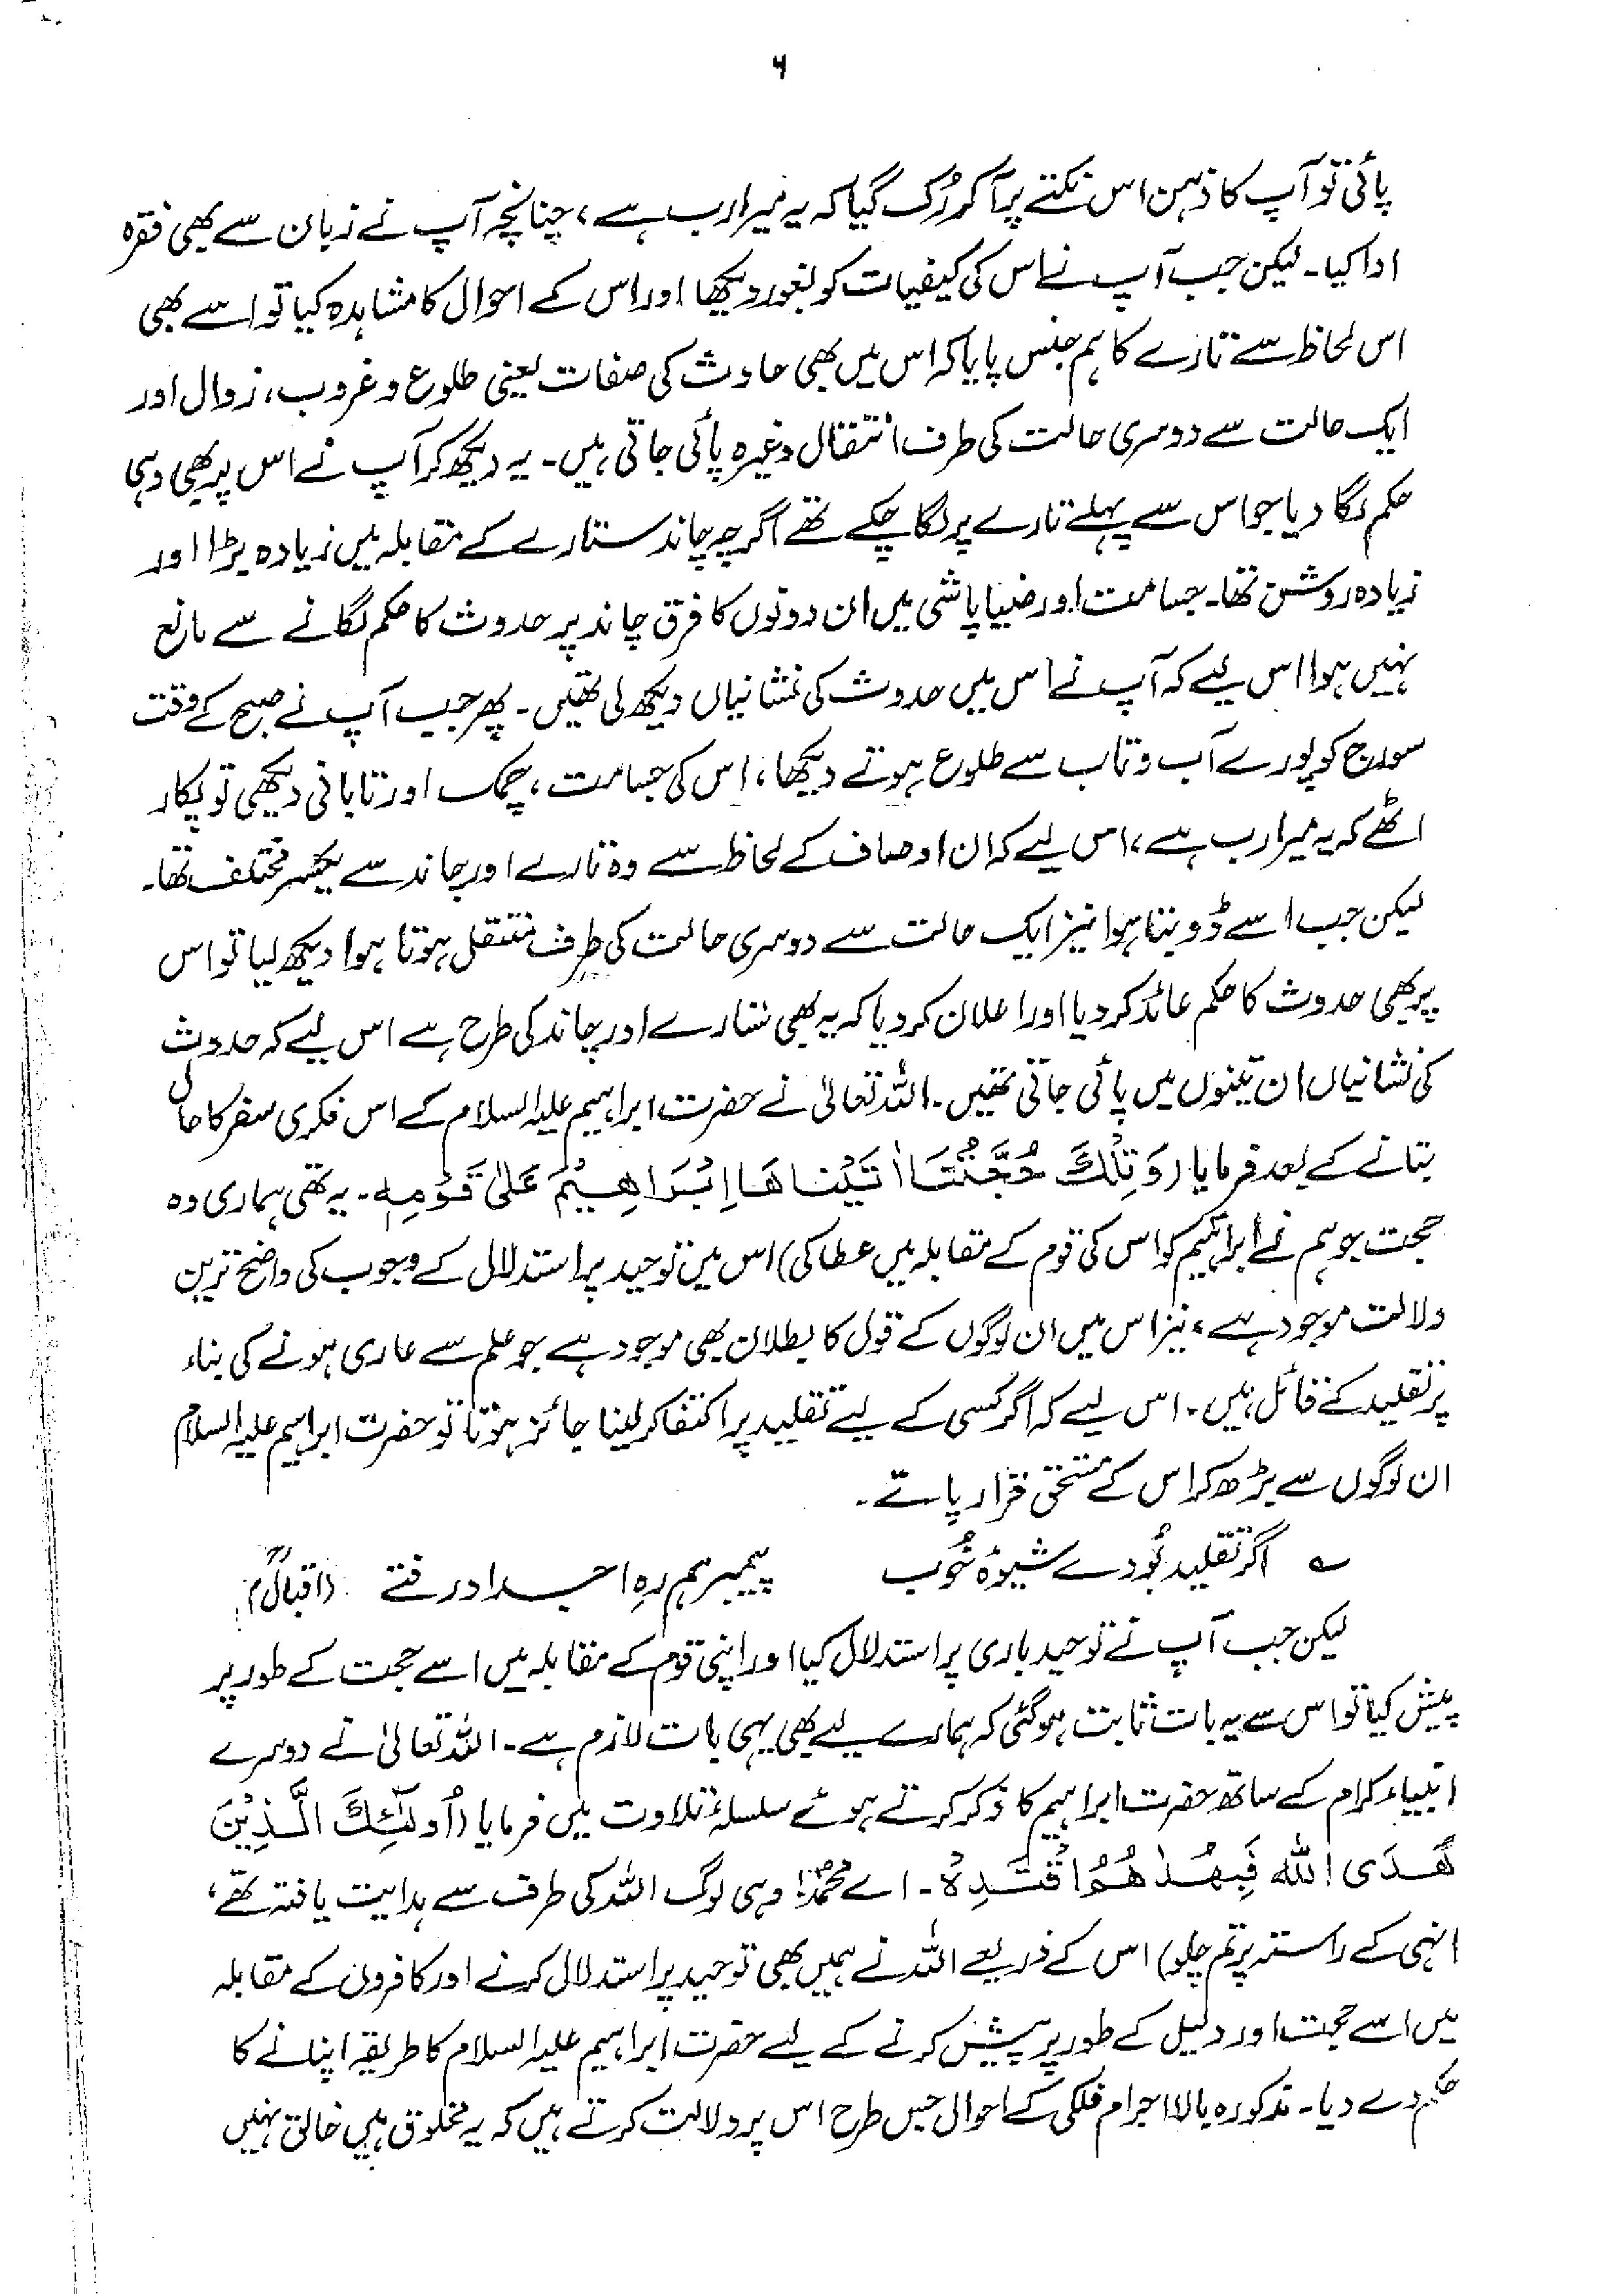 ۶
پائی تو آپ کا ذہن اس نکتے پر آ کر رُک گیا کہ یہ میرا رب ہے، چنانچہ آپ نے زبان سے بھی فقرہ
ادا کیا۔ لیکن جب آپ نے اس کی کیفیات کو بغور دیکھا اور اس کے احوال کا مشاہدہ کیا تو اسے بھی
اس لحاظ سے تارے کا ہم جنس پایا کہ اس میں بھی حادث کی صفات یعنی طلوع و غروب، زوال اور
ایک حالت سے دوسری حالت کی طرف انتقال وغیرہ پائی جاتی ہیں۔ یہ دیکھ کر آپ نے اس پر بھی وہی
حکم لگا دیا جو اس سے پہلے تارے پر لگا چکے تھے اگرچہ چاند ستارے کے مقابلہ میں زیادہ بڑا اور
زیادہ روشن تھا۔ جسامت اور ضیا پاشی میں ان دونوں کا فرق چاند پر حدوث کا حکم لگانے سے مانع
نہیں ہوا اس لیے کہ آپ نے اس میں حدوث کی نشانیاں دیکھ لی تھیں۔ پھر جب آپ نے صبح کے وقت
سورج کو پورے آب و تاب سے طلوع ہوتے دیکھا، اس کی جسامت، چمک اور تابانی دیکھی تو پکار
اٹھے کہ یہ میرا رب ہے، اس لیے کہ ان اوصاف کے لحاظ سے وہ تارے اور چاند سے یکسر مختلف تھا۔
لیکن جب اسے ڈوبتا ہوا نیز ایک حالت سے دوسری حالت کی طرف منتقل ہوتا ہوا دیکھ لیا تو اس
پر بھی حدوث کا حکم عائد کر دیا اور اعلان کر دیا کہ یہ بھی ستارے اور چاند کی طرح ہے اس لیے کہ حدوث
کی نشانیاں ان تینوں میں پائی جاتی تھیں۔ اللہ تعالیٰ نے حضرت ابراہیم علیہ السلام کے اس فکری سفر کا حال
بتانے کے بعد فرمایا (وَتِلْكَ حُجَّتُنَا اٰتَيْنَاهَا اِبْرَاهِيْمَ عَلٰى قَوْمِهٖ۔ یہ تھی ہماری وہ
حجت جو ہم نے ابراہیم کو اس کی قوم کے مقابلہ میں عطا کی) اس میں توحید پر استدلال کے وجوب کی واضح ترین
دلالت موجود ہے، نیز اس میں ان لوگوں کے قول کا بطلان بھی موجود ہے جو علم سے عاری ہونے کی بناء
پر تقلید کے قائل ہیں۔ اس لیے کہ اگر کسی کے لیے تقلید پر اکتفا کر لینا جائز ہوتا تو حضرت ابراہیم علیہ السلام
ان لوگوں سے بڑھ کر اس کے مستحق قرار پاتے۔
؎ اگر تقلید بُودے شیوۂ خُوب پیمبر ہم رہِ اجداد رفتے (اقبالؒ)
لیکن جب آپ نے توحید باری پر استدلال کیا اور اپنی قوم کے مقابلہ میں اسے حجت کے طور پر
پیش کیا تو اس سے یہ بات ثابت ہو گئی کہ ہمارے لیے بھی یہی بات لازم ہے۔ اللہ تعالیٰ نے دوسرے
انبیاء کرام کے ساتھ حضرت ابراہیم کا ذکر کرتے ہوئے سلسلۂ تلاوت میں فرمایا (اُولٰٓئِكَ الَّذِيْنَ
هَدَى اللّٰهُ فَبِهُدٰهُمُ اقْتَدِهْ۔ اے محمدؐ! وہی لوگ اللہ کی طرف سے ہدایت یافتہ تھے،
انہی کے راستہ پر تم چلو) اس کے ذریعے اللہ نے ہمیں بھی توحید پر استدلال کرنے اور کافروں کے مقابلہ
میں اسے حجت اور دلیل کے طور پر پیش کرنے کے لیے حضرت ابراہیم علیہ السلام کا طریقہ اپنانے کا
حکم دے دیا۔ مذکورہ بالا اجرام فلکی کے احوال جس طرح اس پر دلالت کرتے ہیں کہ یہ مخلوق ہیں خالق نہیں